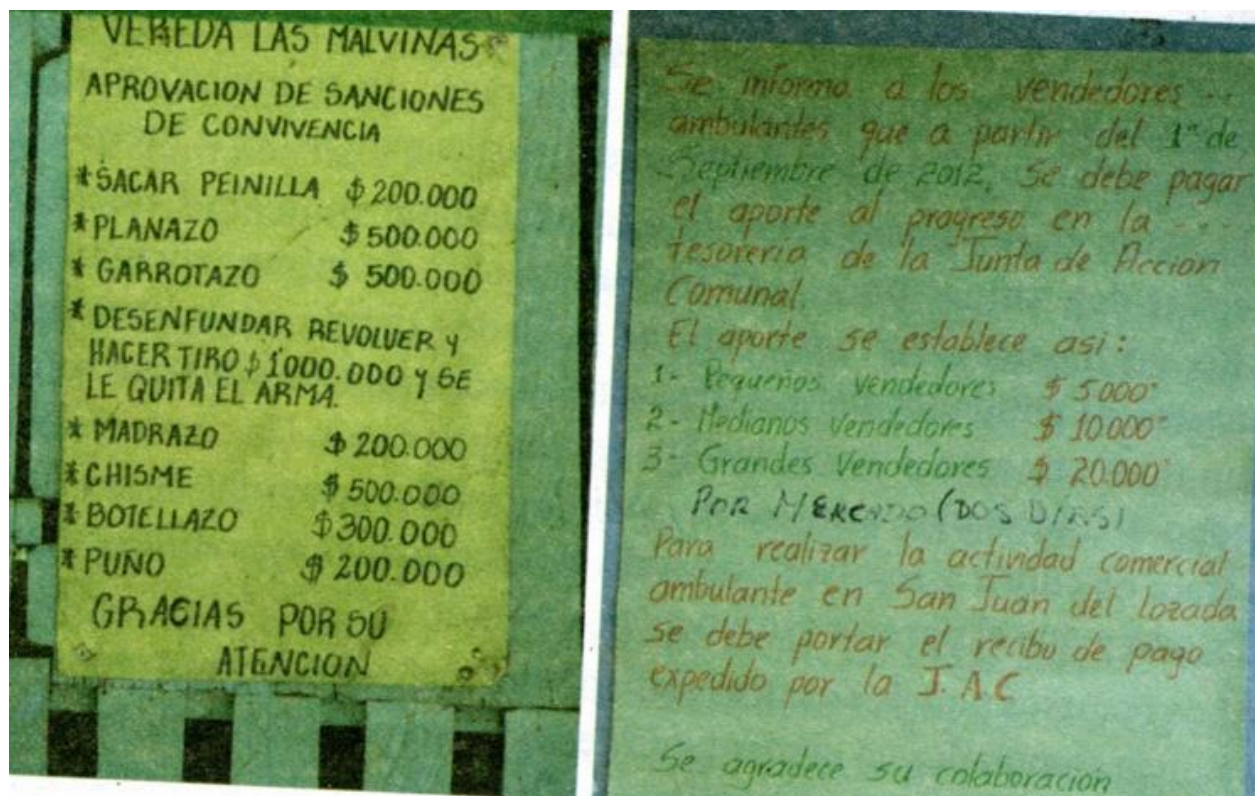 VEREDA LAS MALVINAS
APROVACION DE SANCIONES
DE CONVIVENCIA
* SACAR PEINILLA $200.000
* PLANAZO $500.000
* GARROTAZO $ 500.000
* DESENFUNDAR REVOLVER Y
HACER TIRO $1000.000 Y SE
LE QUITA EL ARMA.
* MADRAZO $200.000
* CHISME $500.000
* BOTELLAZO $300.000
* PUÑO $200.000
GRACIAS POR SU
ATENCION
Se informa a los vendedores
ambulantes que a partir del 1º de
Septiembre de 2012, se debe pagar
el aporte al progreso en la
tesoreria de la Junta de Accion
Comunal.
El aporte se establece asi:
1- Pequeños vendedores $ 5.000
2- Medianos Vendedores $ 10.000
3- Grandes Vendedores $ 20.000
POR MERCADO (DOS DIAS)
Para realizar la actividad comercial
ambulante en San Juan del Lozada
se debe portar el recibo de pago
expedido por la J.A.C
Se agradece su colaboración